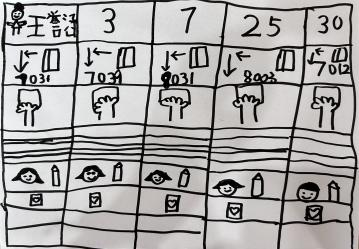 王誉 3 7 25 30
7031 7039 8031 8003 7012